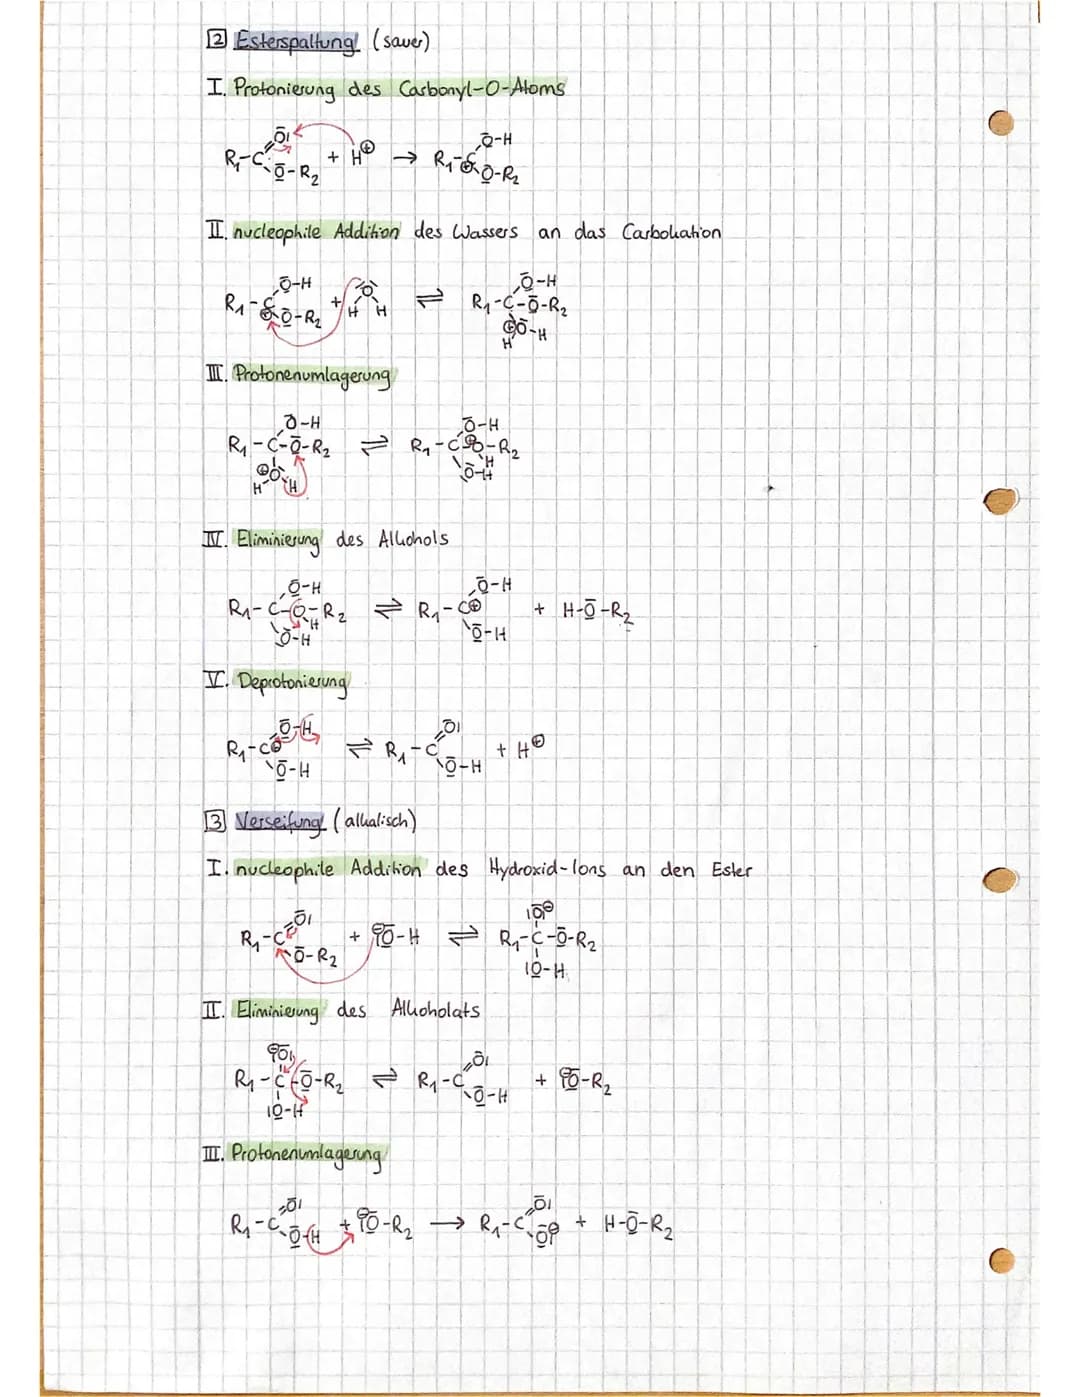 2 Esterspaltung (sauer)
I. Protonierung des Carbonyl-O-Atoms
R₁-C O̅| O̅-R₂ + H⊕ → R₁-C⊕ O̅-H O̅-R₂
II. nucleophile Addition des Wassers an das Carbokation
R₁-C⊕ O̅-H O̅-R₂ + O H H ⇌ R₁-C-O̅-R₂ O̅-H ⊕O̅-H H
III. Protonenumlagerung
R₁-C-O̅-R₂ O̅-H ⊕O H H ⇌ R₁-C O⊕-R₂ O̅-H H O̅-H
IV. Eliminierung des Alkohols
R₁-C-O-R₂ O̅-H H O̅-H ⇌ R₁-C⊕ O̅-H O̅-H + H-O̅-R₂
V. Deprotonierung
R₁-C⊕ O̅-H O̅-H ⇌ R₁-C O̅| O̅-H + H⊕
3 Verseifung (alkalisch)
I. nucleophile Addition des Hydroxid-Ions an den Ester
R₁-C O̅| O̅-R₂ + ⊖|O̅-H ⇌ R₁-C-O̅-R₂ |O̅|⊖ |O̅-H
II. Eliminierung des Alkoholats
R₁-C-O̅-R₂ ⊖|O̅| |O̅-H ⇌ R₁-C O̅| O̅-H + ⊖|O̅-R₂
III. Protonenumlagerung
R₁-C O̅| O̅-H + ⊖|O̅-R₂ → R₁-C O̅| O̅|⊖ + H-O̅-R₂